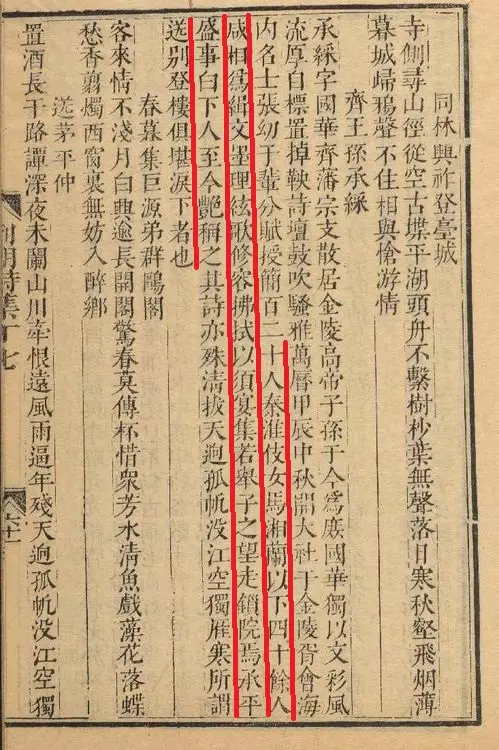 同林與祚登臺城
寺側尋山徑從空古堞平湖頭舟不繫樹杪葉無聲落日寒秋壑飛烟薄
暮城歸鴉聲不住相與愴游情
齊王孫承綵
承綵字國華齊藩宗支散居金陵高帝子孫于今爲庶國華獨以文彩風
流厚自標置掉鞅詩壇鼓吹騷雅萬曆甲辰中秋開大社于金陵胥會海
內名士張幼于輩分賦授簡百二十人秦淮伎女馬湘蘭以下四十餘人
咸相爲緝文墨理絃歌修容拂拭以須宴集若舉子之望走鎖院焉承平
盛事白下人至今艷稱之其詩亦殊清拔天逈孤帆没江空獨雁寒所謂
送別登樓俱堪淚下者也
春暮集巨源弟群鷗閣
客來情不淺月白興逾長開閣驚春莫傳杯惜衆芳水清魚戲藻花落蝶
愁香翦燭西窗裏無妨入醉鄉
送茅平仲
置酒長干路譚深夜未闌山川牽恨遠風雨逼年殘天逈孤帆没江空獨
列朝詩集丁七